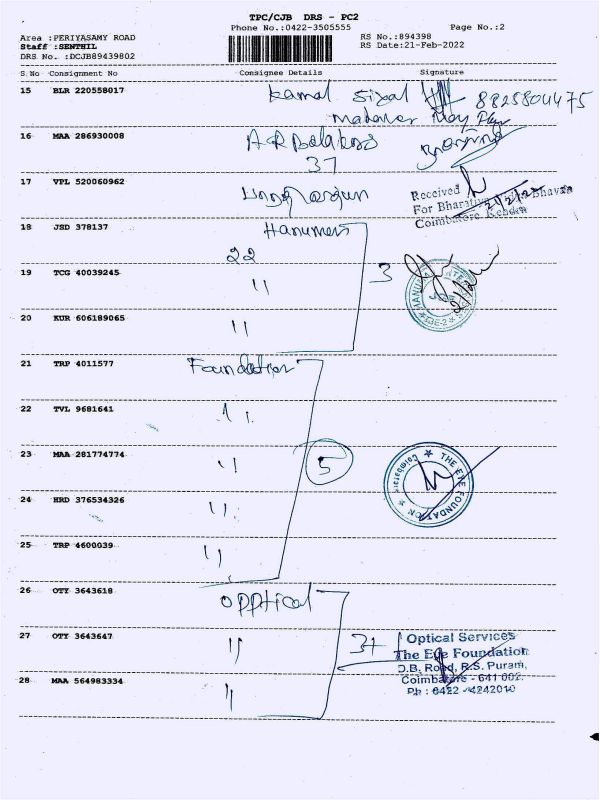 TPC/CJB DRS - PC2
Phone No.:0422-3505555 Page No.:2
Area :PERIYASAMY ROAD RS No.:894398
Staff :SENTHIL RS Date:21-Feb-2022
DRS No. :DCJB89439802
S.No Consignment No Consignee Details Signature
15 BLR 220558017 Kamal 8825804475
16 MAA 286930008 A R
37
17 VPL 520060962
Received
For Bharatiya Vidya Bhavan
Coimbatore Kendra
18 JSD 378137 Hanuman
22
19 TCG 40039245 " 3
20 KUR 606189065 "
21 TRP 4011577 Foundation
22 TVL 9681641 "
23 MAA 281774774 " 5
THE EYE FOUNDATION Coimbatore
24 HRD 376534326 "
25 TRP 4600039 "
26 OTY 3643618 Opptical
27 OTY 3643647 " 3
Optical Services
The Eye Foundation
D.B. Road, R.S. Puram,
Coimbatore - 641 002.
Ph : 0422 - 4242010
28 MAA 564983334 "